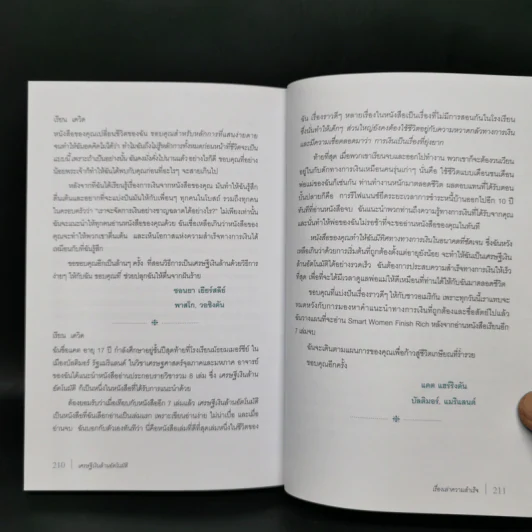 เรียน เดวิด
หนังสือของคุณเปลี่ยนชีวิตของฉัน ขอบคุณสำหรับหลักการที่แสนง่ายดาย
จนทำให้ฉันอดคิดไม่ได้ว่า ทำไมฉันถึงไม่รู้หลักการทั้งหมดก่อนหน้าที่ชีวิตจะเป็น
แบบนี้ เพราะถ้าเป็นอย่างนั้น ฉันคงมั่งคั่งไปนานแล้ว อย่างไรก็ดี ขอบคุณที่อย่าง
น้อยพระเจ้าก็ทำให้ฉันได้พบกับคุณก่อนที่อะไรๆ จะสายเกินไป
หลังจากที่ฉันได้เรียนรู้เรื่องการเงินจากหนังสือของคุณ มันทำให้ฉันรู้สึก
ตื่นเต้นและอยากที่จะแบ่งปันมันให้กับเพื่อนๆ ทุกคนในโบสถ์ รวมถึงทุกคน
ในครอบครัวว่า "เราจะจัดการเงินอย่างชาญฉลาดได้อย่างไร" ไม่เพียงเท่านั้น
ฉันจะแนะนำให้ทุกคนอ่านหนังสือของคุณด้วย ฉันเชื่อเหลือเกินว่าหนังสือของ
คุณจะทำให้พวกเขาตื่นเต้น และเห็นโอกาสแห่งความสำเร็จทางการเงินได้
เหมือนกับที่ฉันรู้สึก
ขอขอบคุณอีกเป็นล้านๆ ครั้ง ที่สอนวิธีการเป็นเศรษฐีเงินล้านด้วยวิธีการ
ง่ายๆ ให้กับฉัน ขอบคุณที่ช่วยปลุกฉันให้ตื่นจากฝันร้าย
ชอนยา เยียร์ดลีย์
พาสโก, วอชิงตัน
เรียน เดวิด
ฉันชื่อแคต อายุ 17 ปี กำลังศึกษาอยู่ชั้นปีสุดท้ายที่โรงเรียนมัธยมเมอร์ซี่ ใน
เมืองบัลติมอร์ รัฐแมริแลนด์ ในวิชาเศรษฐศาสตร์จุลภาคและมหภาค อาจารย์
ของฉันได้แนะนำหนังสืออ่านประกอบรายวิชารวม 8 เล่ม ซึ่ง เศรษฐีเงินล้าน
อัตโนมัติ ก็เป็นหนึ่งในหนังสือที่ได้รับการแนะนำด้วย
ต้องยอมรับว่าเมื่อเทียบกับหนังสืออีก 7 เล่มแล้ว เศรษฐีเงินล้านอัตโนมัติ
เป็นหนังสือที่ฉันเลือกอ่านเป็นเล่มแรก เพราะเขียนอ่านง่าย ไม่น่าเบื่อ และเมื่อ
อ่านจบ ฉันบอกกับตัวเองทันทีว่า นี่คือหนังสือเล่มที่ดีที่สุดเล่มหนึ่งในชีวิตของ
210 | เศรษฐีเงินล้านอัตโนมัติ
ฉัน เรื่องราวดีๆ หลายเรื่องในหนังสือเป็นเรื่องที่ไม่มีการสอนกันในโรงเรียน
ซึ่งนั่นทำให้เด็กๆ ส่วนใหญ่ยังคงต้องใช้ชีวิตอยู่กับความหวาดกลัวทางการเงิน
และมีความเชื่อตลอดมาว่า การเงินเป็นเรื่องที่ยุ่งยาก
ท้ายที่สุด เมื่อพวกเขาเรียนจบและออกไปทำงาน พวกเขาก็จะต้องวนเวียน
อยู่ในกับดักทางการเงินเหมือนคนรุ่นเก่าๆ นั่นคือ ใช้ชีวิตแบบเดือนชนเดือน
พ่อแม่ของฉันก็เช่นกัน ท่านทำงานหนักมาตลอดชีวิต ผลตอบแทนที่ได้รับตอน
บั้นปลายก็คือ การรีไฟแนนซ์ยืดระยะเวลาการชำระหนี้บ้านออกไปอีก 10 ปี
ทันทีที่อ่านหนังสือจบ ฉันแนะนำพวกท่านถึงความรู้ทางการเงินที่ได้รับจากคุณ
และนั่นทำให้พ่อของฉันไม่รอช้าที่จะขออ่านหนังสือของคุณในทันที
หนังสือของคุณทำให้ฉันมีทิศทางทางการเงินในอนาคตที่ชัดเจน ซึ่งฉันหวัง
เหลือเกินว่าด้วยการเริ่มต้นที่ถูกต้องตั้งแต่อายุยังน้อย จะทำให้ฉันเป็นเศรษฐี
เงินล้านอัตโนมัติได้อย่างรวดเร็ว ฉันต้องการประสบความสำเร็จทางการเงินให้เร็ว
ที่สุด เพื่อที่จะได้มีเวลาดูแลพ่อแม่ให้ดีเหมือนที่ท่านได้ให้กับฉันมาตลอดชีวิต
ขอบคุณที่แบ่งปันเรื่องราวดีๆ ให้กับชาวอเมริกัน เพราะทุกวันนี้เราแทบจะ
หมดหวังกับการมองหาคำแนะนำทางการเงินที่ถูกต้องและซื่อสัตย์ไปแล้ว
ฉันวางแผนที่จะอ่าน Smart Women Finish Rich หลังจากอ่านหนังสือเรียนอีก
7 เล่มจบ
ฉันจะเดินตามแผนการของคุณเพื่อก้าวสู่ชีวิตเกษียณที่ร่ำรวย
ขอบคุณอีกครั้ง
แคต แฮร์ริงตัน
บัลติมอร์, แมริแลนด์
เรื่องเล่าความสำเร็จ | 211